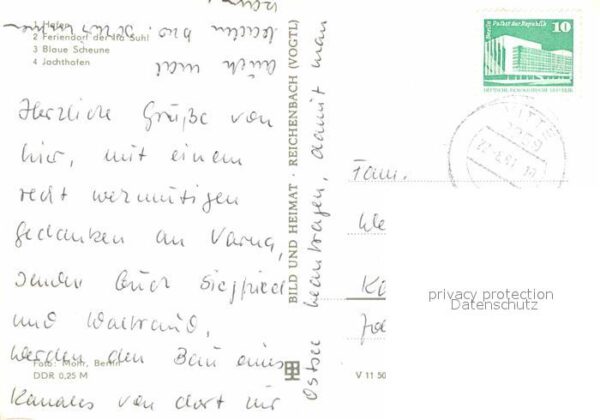 1 Hafen
2 Feriendorf der
Suhl
3 Blaue Scheune
4 Jachthafen
Herzliche Grüße von
hier, mit einem
recht wermutigen
gedanken an Varna,
senden Euch Siegfried
und Waltraud,
werden den Bau eines
Kanales von dort zur
Ostsee beantragen, damit man
auch mal
Foto: Mohr, Berlin
DDR 0,25 M
BILD UND HEIMAT · REICHENBACH (VOGTL)
V 11 50
Berlin Palast der Republik
10
DEUTSCHE DEMOKRATISCHE REPUBLIK
VITTE
Fam.
We
Kö
privacy protection
Datenschutz